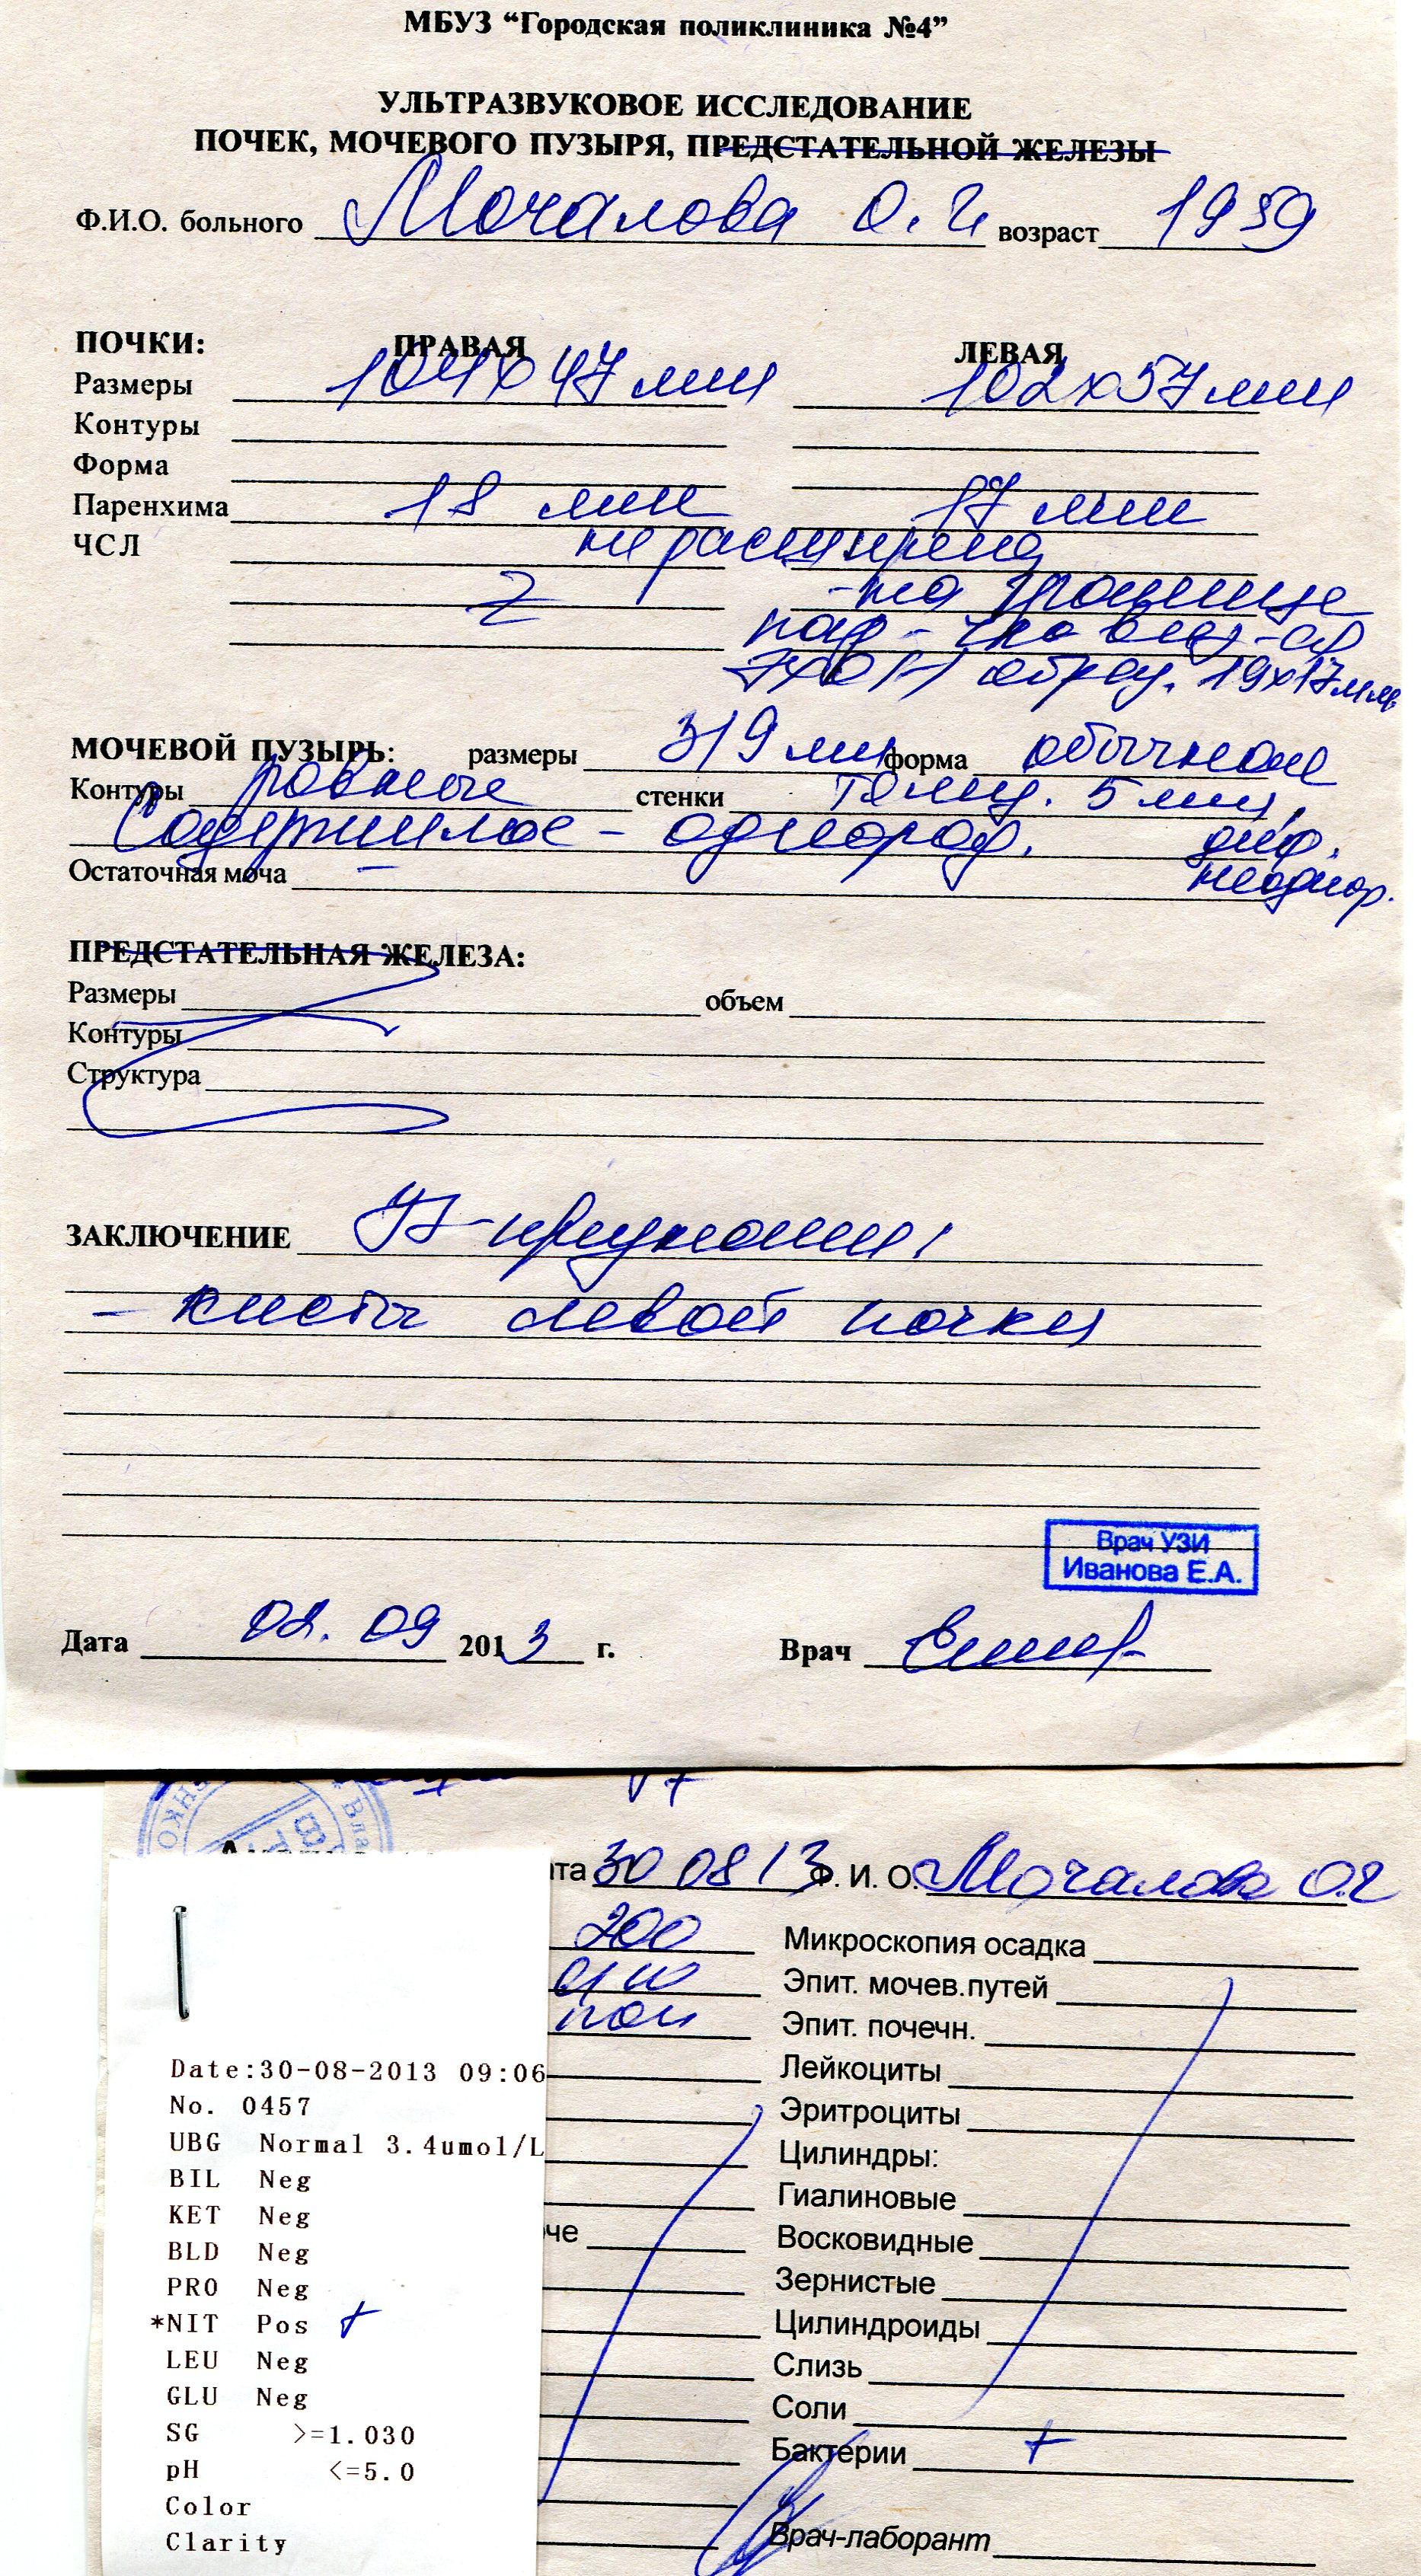 МБУЗ “Городская поликлиника №4”
УЛЬТРАЗВУКОВОЕ ИССЛЕДОВАНИЕ
ПОЧЕК, МОЧЕВОГО ПУЗЫРЯ, ПРЕДСТАТЕЛЬНОЙ ЖЕЛЕЗЫ
Ф.И.О. больного Мочалова О. Г. возраст 1959
ПОЧКИ: ПРАВАЯ ЛЕВАЯ
Размеры 104х47мм 102х57мм
Контуры
Форма
Паренхима 18 мм 17 мм
ЧСЛ не расширена
- на границе
образ. 19х17мм
МОЧЕВОЙ ПУЗЫРЬ: размеры 319 мл форма обычной
Контуры ровные стенки толщ. 5 мм,
Содержимое - однород. диф.
Остаточная моча – неоднор.
ПРЕДСТАТЕЛЬНАЯ ЖЕЛЕЗА:
Размеры объем
Контуры
Структура
ЗАКЛЮЧЕНИЕ УЗ-признаки
- кисты левой почки
Врач УЗИ
Иванова Е.А.
Дата 02. 09 2013 г. Врач
та 30 08 13 Ф. И. О. Мочалова О.Г
200 Микроскопия осадка
Эпит. мочев.путей
Эпит. почечн.
Date:30-08-2013 09:06 Лейкоциты
No. 0457 Эритроциты
UBG Normal 3.4umol/L Цилиндры:
BIL Neg
KET Neg Гиалиновые
BLD Neg че Восковидные
PRO Neg Зернистые
*NIT Pos + Цилиндроиды
LEU Neg Слизь
GLU Neg Соли
SG >=1.030 Бактерии +
pH <=5.0
Color
Clarity Врач-лаборант